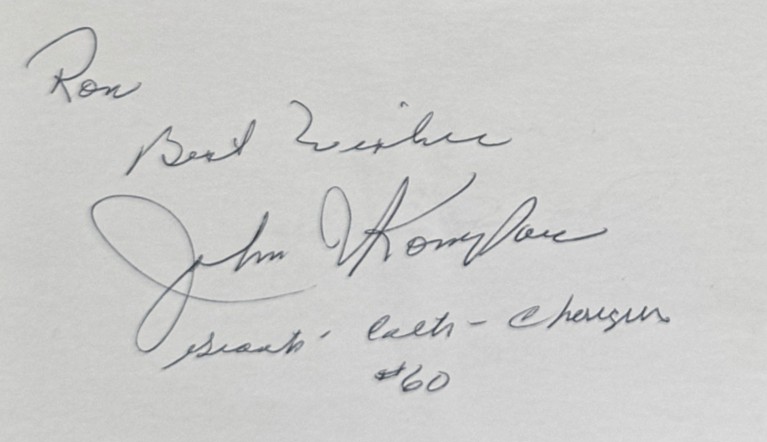 Ron
Best Wishes
John
Giants - Colts - Chargers
#60